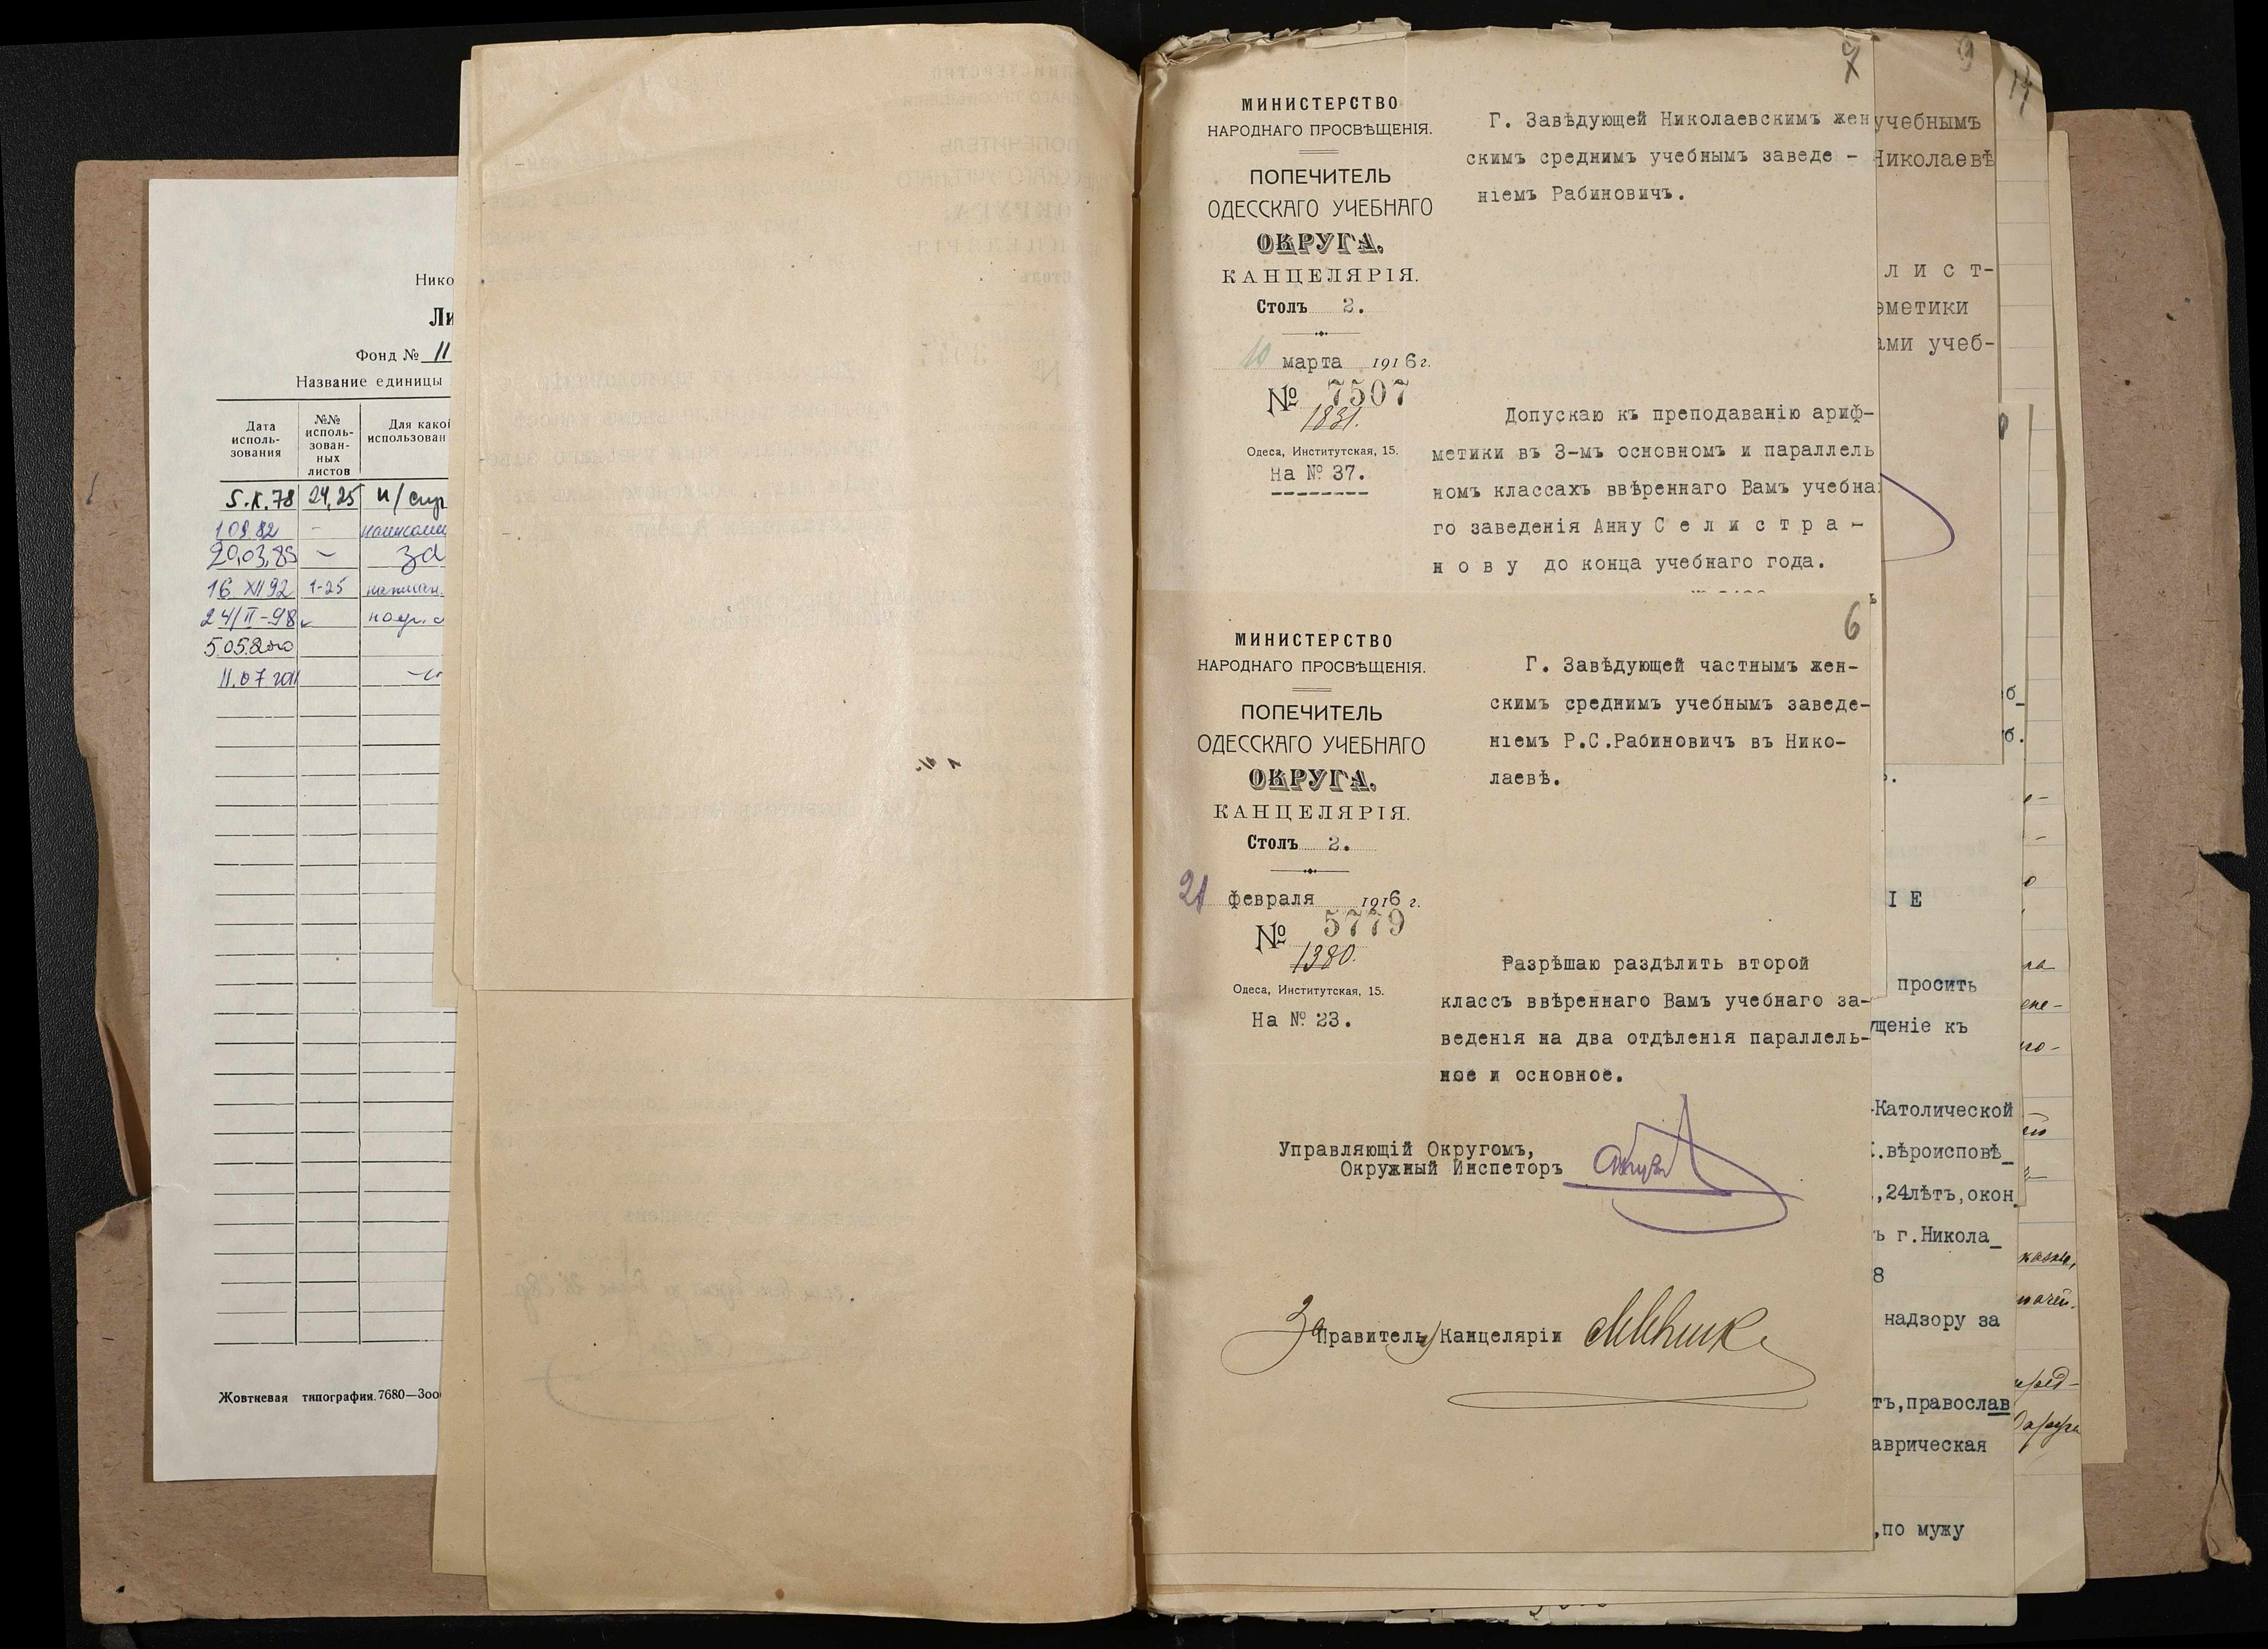 Нико
Ли
Фонд № 11
Название единицы
Дата исполь-зования
№№ исполь-зован-ных листов
Для какой использован
5.X.78 24,25
109.82 -
20.03.85 -
16 XII 92 1-25
24/II-98
5.05.2000
11.07
Жовтневая типография. 7680—300
МИНИСТЕРСТВО
НАРОДНАГО ПРОСВѢЩЕНІЯ.
ПОПЕЧИТЕЛЬ
ОДЕССКАГО УЧЕБНАГО
ОКРУГА.
КАНЦЕЛЯРІЯ.
Столъ 2.
10 марта 1916 г.
№ 7507
1831.
Одеса, Институтская, 15.
На № 37.
7
Г. Завѣдующей Николаевскимъ жен
скимъ среднимъ учебнымъ заведе -
ніемъ Рабиновичъ.
Допускаю къ преподаванію ариф-
метики въ 3-мъ основномъ и параллель
номъ классахъ ввѣреннаго Вамъ учебна
го заведенія Анну С е л и с т р а -
н о в у до конца учебнаго года.
6
МИНИСТЕРСТВО
НАРОДНАГО ПРОСВѢЩЕНІЯ.
ПОПЕЧИТЕЛЬ
ОДЕССКАГО УЧЕБНАГО
ОКРУГА.
КАНЦЕЛЯРІЯ.
Столъ 2.
21 февраля 1916 г.
№ 5779
1380.
Одеса, Институтская, 15.
На № 23.
Г. Завѣдующей частнымъ жен-
скимъ среднимъ учебнымъ заведе-
ніемъ Р.С.Рабиновичъ въ Нико-
лаевѣ.
Разрѣшаю раздѣлить второй
классъ ввѣреннаго Вамъ учебнаго за-
веденія на два отдѣленія параллель-
ное и основное.
Управляющій Округомъ,
Окружный Инспеторъ
За Правителя Канцеляріи
9
учебнымъ
Николаевѣ
л и с т-
ѳметики
ами учеб-
14
б_
б.
І Е
просить
ущеніе къ
-Католической
.вѣроисповѣ_
,24лѣтъ,окон
ъ г.Никола_
8
надзору за
тъ,православ
аврическая
,по мужу